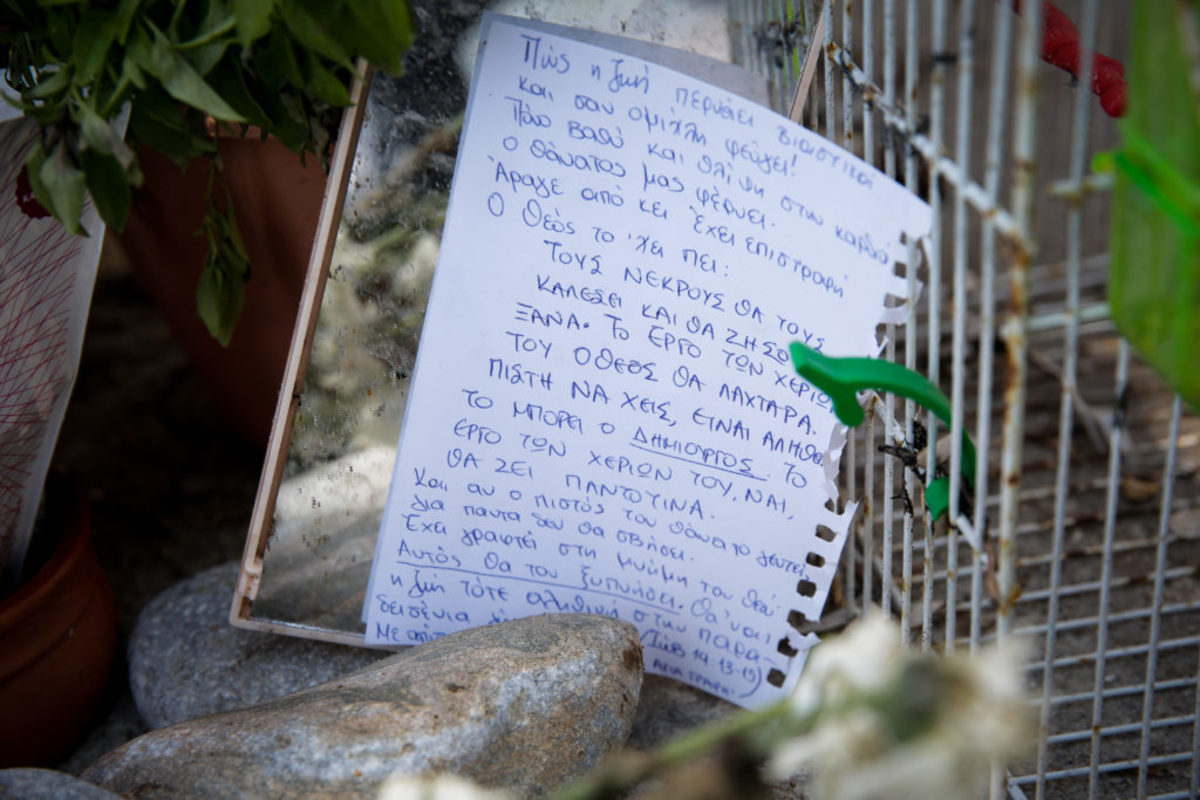 Πώς η ζωή περνάει βιαστικά
και σαν ομίχλη φεύγει!
Πόνο βαθύ και θλίψη στην καρδιά
ο θάνατος μας φέρνει.
Άραγε από κει έχει επιστροφή
Ο Θεός το 'χει πει:
ΤΟΥΣ ΝΕΚΡΟΥΣ ΘΑ ΤΟΥΣ
ΚΑΛΕΣΕΙ ΚΑΙ ΘΑ ΖΗΣΟ
ΞΑΝΑ. ΤΟ ΕΡΓΟ ΤΩΝ ΧΕΡΙΩ
ΤΟΥ Ο ΘΕΟΣ ΘΑ ΛΑΧΤΑΡΑ.
ΠΙΣΤΗ ΝΑ ΧΕΙΣ, ΕΙΝΑΙ ΑΛΗΘΕ
ΤΟ ΜΠΟΡΕΙ Ο ΔΗΜΙΟΥΡΓΟΣ. ΤΟ
ΕΡΓΟ ΤΩΝ ΧΕΡΙΩΝ ΤΟΥ, ΝΑΙ,
ΘΑ ΖΕΙ ΠΑΝΤΟΤΙΝΑ.
Και αν ο πιστός του θάνατο γευτεί
για πάντα δεν θα σβήσει.
Έχει γραφτεί στη μνήμη του Θεού
Αυτός θα τον ξυπνήσει. Θα 'ναι
η ζωή τότε αληθινή στην παρα-
δεισένια (Ιώβ 14:13-15)
Με